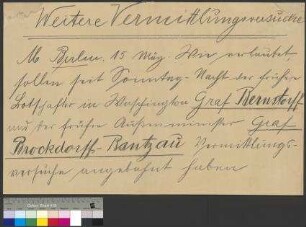 Weitere Vermittlungsversuche
M Berlin, 15 März. Wie verlautet,
sollen seit Sonntag-Nacht der frühere
Botschafter in Washington Graf Bernstorff
und der frühere Außenminister Graf
Brockdorff-Rantzau Vermittlungs-
versuche angebahnt haben